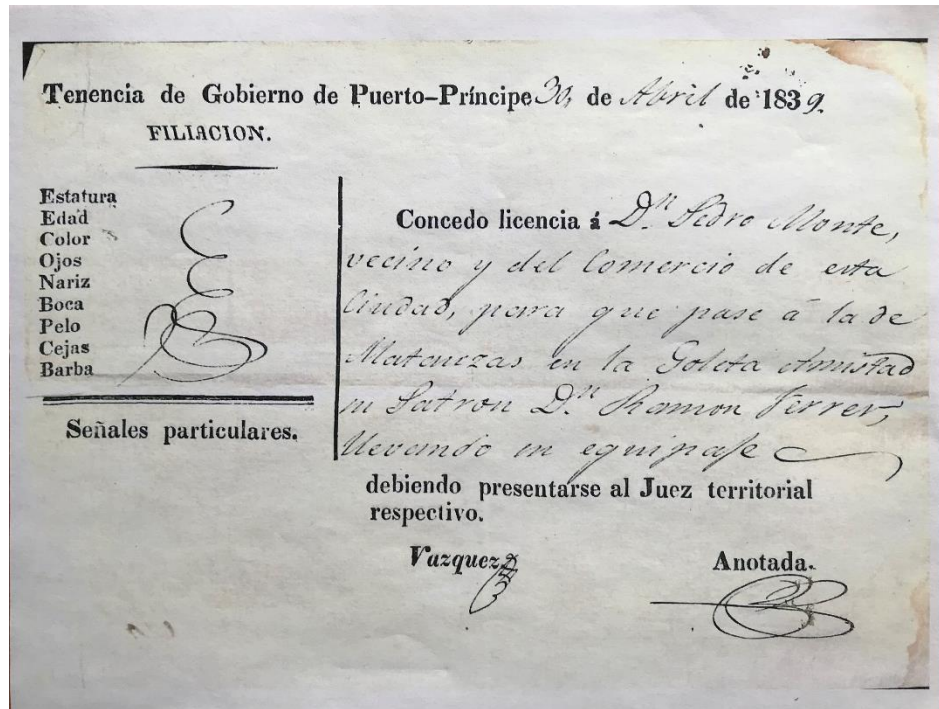 Tenencia de Gobierno de Puerto-Príncipe 30, de Abril de 1839.
FILIACION.
Estatura
Edad
Color
Ojos
Nariz
Boca
Pelo
Cejas
Barba
Señales particulares.
Concedo licencia á Dn. Pedro Monte,
vecino y del Comercio de esta
Ciudad, para que pase á la de
Matanzas en la Goleta Amistad
su Patron Dn. Ramon Ferrer,
llevando su equipaje
debiendo presentarse al Juez territorial
respectivo.
Vazquez
Anotada.